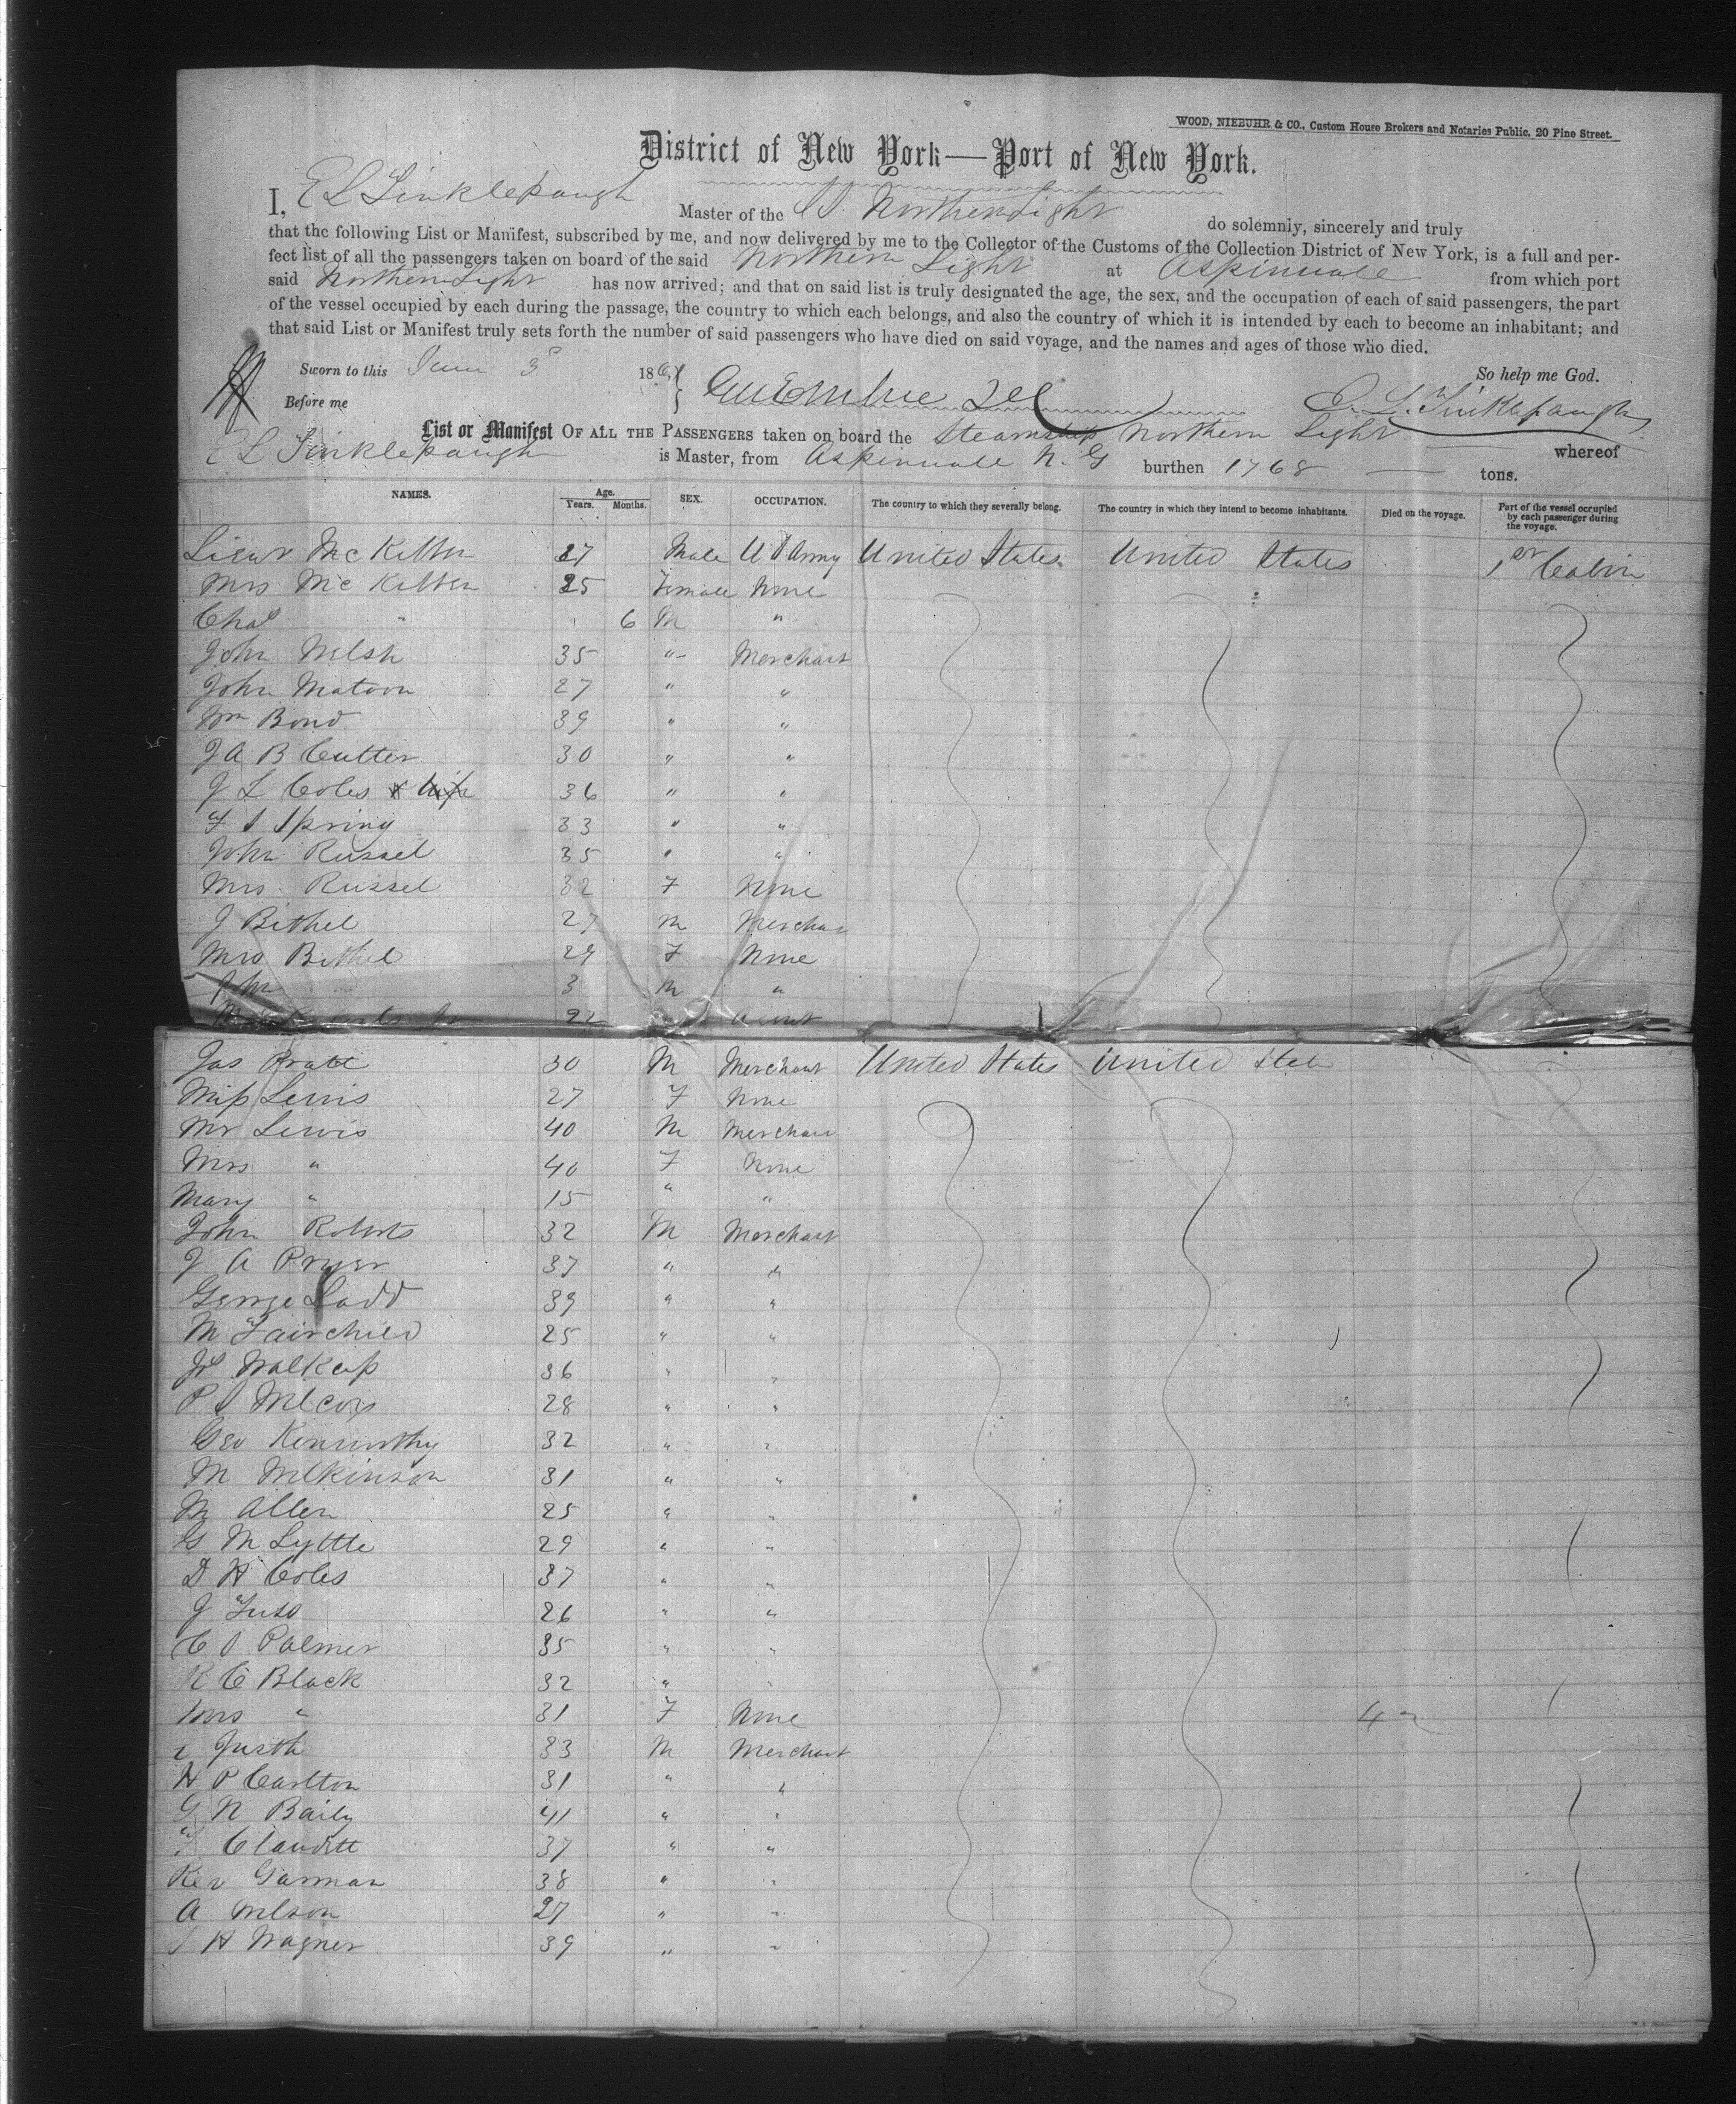 WOOD, NIEBUHR & CO., Custom House Brokers and Notaries Public, 20 Pine Street.
District of New York—Port of New York.
I, E L Tinklepaugh Master of the SS. Northern Light do solemnly, sincerely and truly
that the following List or Manifest, subscribed by me, and now delivered by me to the Collector of the Customs of the Collection District of New York, is a full and per-
fect list of all the passengers taken on board of the said Northern Light at Aspinwall from which port
said Northern Light has now arrived; and that on said list is truly designated the age, the sex, and the occupation of each of said passengers, the part
of the vessel occupied by each during the passage, the country to which each belongs, and also the country of which it is intended by each to become an inhabitant; and
that said List or Manifest truly sets forth the number of said passengers who have died on said voyage, and the names and ages of those who died.
Sworn to this June 3 186 So help me God.
Before me E. L. Tinklepaugh
List or Manifest OF ALL THE PASSENGERS taken on board the Steamship Northern Light whereof
E L Tinklepaugh is Master, from Aspinwall N. G burthen 1768 tons.
NAMES. Age. Years. Months. SEX. OCCUPATION. The country to which they severally belong. The country in which they intend to become inhabitants. Died on the voyage. Part of the vessel occupied by each passenger during the voyage.
Lieut McKibben 27 Male U S Army United States United States 1st Cabin
Mrs McKibben 25 Female None
Chas " 6 M "
John Welsh 35 " Merchant
John Matoon 27 " "
Wm Bond 39 " "
J A B Cutter 30 " "
J L Coles 36 " "
F S Spring 33 " "
John Russel 35 " "
Mrs Russel 32 F None
J Bethel 27 M Merchant
Mrs Bethel 29 F None
John 3 M "
22
Jas Pratt 30 M Merchant United States United States
Miss Lewis 27 F None
Mr Lewis 40 M Merchant
Mrs " 40 F None
Mary " 15 " "
John Roberts 32 M Merchant
J A Pryer 37 " "
George Ladd 39 " "
M Fairchild 25 " "
Walkup 36 " "
P S Wilcox 28 " "
Geo Kenworthy 32 " "
M Wilkinson 31 " "
M Allen 25 " "
G M Lyttle 29 " "
D H Coles 37 " "
J 26 " "
C S Palmer 35 " "
R C Black 32 " "
Mrs " 31 F None
Justh 33 M Merchant
H P Carlton 31 " "
G N Baily 41 " "
Clauditt 37 " "
Rev Garman 38 " "
A Wilson 27 " "
H Wagner 39 " "